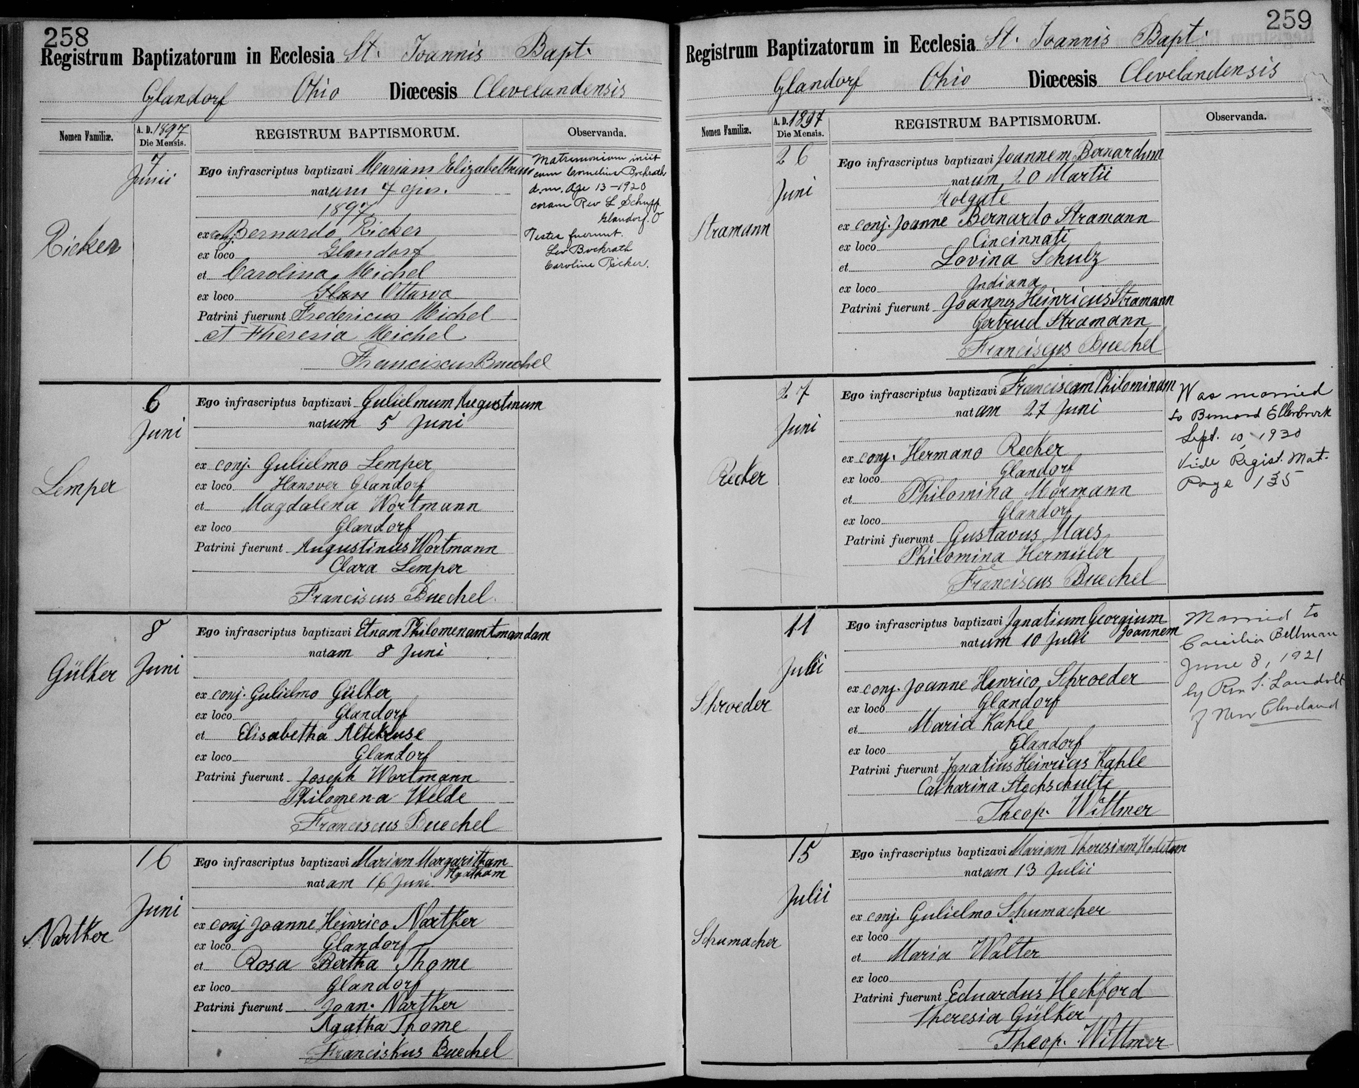 258
Registrum Baptizatorum in Ecclesia St. Joannis Bapt.
Glandorf Ohio Diœcesis Clevelandensis
Nomen Familiæ.
A. D. 1897
Die Mensis.
REGISTRUM BAPTISMORUM.
Observanda.
Ricker
7
Junii
Ego infrascriptus baptizavi Mariam Elizabetham
natam 4 ejus.
1897
ex conj. Bernardo Ricker
ex loco Glandorf
et Carolina Michel
ex loco Ottawa
Patrini fuerunt Fredericus Michel
et Theresia Michel
Franciscus Buechel
Matrimonium iniit
cum Cornelius Bockrath
Age 13-1920
coram Rev L Schupp
Glandorf. O
Testes fuerunt
Leo Bockrath
Caroline Ricker.
Lemper
6
Juni
Ego infrascriptus baptizavi Gulielmum Augustinum
natum 5 Juni
ex conj. Gulielmo Lemper
ex loco Hanover Glandorf
et Magdalena Wortmann
ex loco Glandorf
Patrini fuerunt Augustinus Wortmann
Clara Lemper
Franciscus Buechel
Gülker
8
Juni
Ego infrascriptus baptizavi Etnam Philomenam Amandam
natam 8 Juni
ex conj. Gulielmo Gülker
ex loco Glandorf
et Elisabetha Altekruse
ex loco Glandorf
Patrini fuerunt Joseph Wortmann
Philomena Welde
Franciscus Buechel
Nartker
16
Juni
Ego infrascriptus baptizavi Mariam Margaritham
Agatham
natam 16 Juni.
ex conj Joanne Heinrico Nartker
ex loco Glandorf
et Rosa Bertha Thome
ex loco Glandorf
Patrini fuerunt Joan. Nartker
Agatha Thome
Franciskus Buechel
259
Registrum Baptizatorum in Ecclesia St. Joannis Bapt.
Glandorf Ohio Diœcesis Clevelandensis
Nomen Familiæ.
A. D. 1897
Die Mensis.
REGISTRUM BAPTISMORUM.
Observanda.
Stramann
26
Juni
Ego infrascriptus baptizavi Joannem Bernardum
natum 20 Martii
Holgate
ex conj. Joanne Bernardo Stramann
ex loco Cincinnati
et Lovina Schulz
ex loco Indiana
Patrini fuerunt Joannes Heinricus Stramann
Gertrud Stramann
Franciscus Buechel
Recker
27
Juni
Ego infrascriptus baptizavi Franciscam Philominam
natam 27 Juni
ex conj. Hermano Recker
ex loco Glandorf
et Philomina Mormann
ex loco Glandorf
Patrini fuerunt Gustavus Maes
Philomina Hermüler
Franciscus Buechel
Was married
to Bernard Ellerbrock
Sept. 10, 1920
Vide Regist. Mat.
Page 135
Schroeder
11
Julii
Ego infrascriptus baptizavi Ignatium Georgium
Joannem
natum 10 Julii
ex conj. Joanne Henrico Schroeder
ex loco Glandorf
et Maria Kahle
ex loco Glandorf
Patrini fuerunt Ignatius Heinricus Kahle
Catharina Stechschulte
Theop. Wittmer
Married to
Caecilia Bellman
June 8, 1921
by Rev.
of New Cleveland
Schumacher
15
Julii
Ego infrascriptus baptizavi Mariam Theresiam
natam 13 Julii
ex conj. Gulielmo Schumacher
ex loco
et Maria Walter
ex loco
Patrini fuerunt Eduardus Heckford
Theresia Gülker
Theop. Wittmer